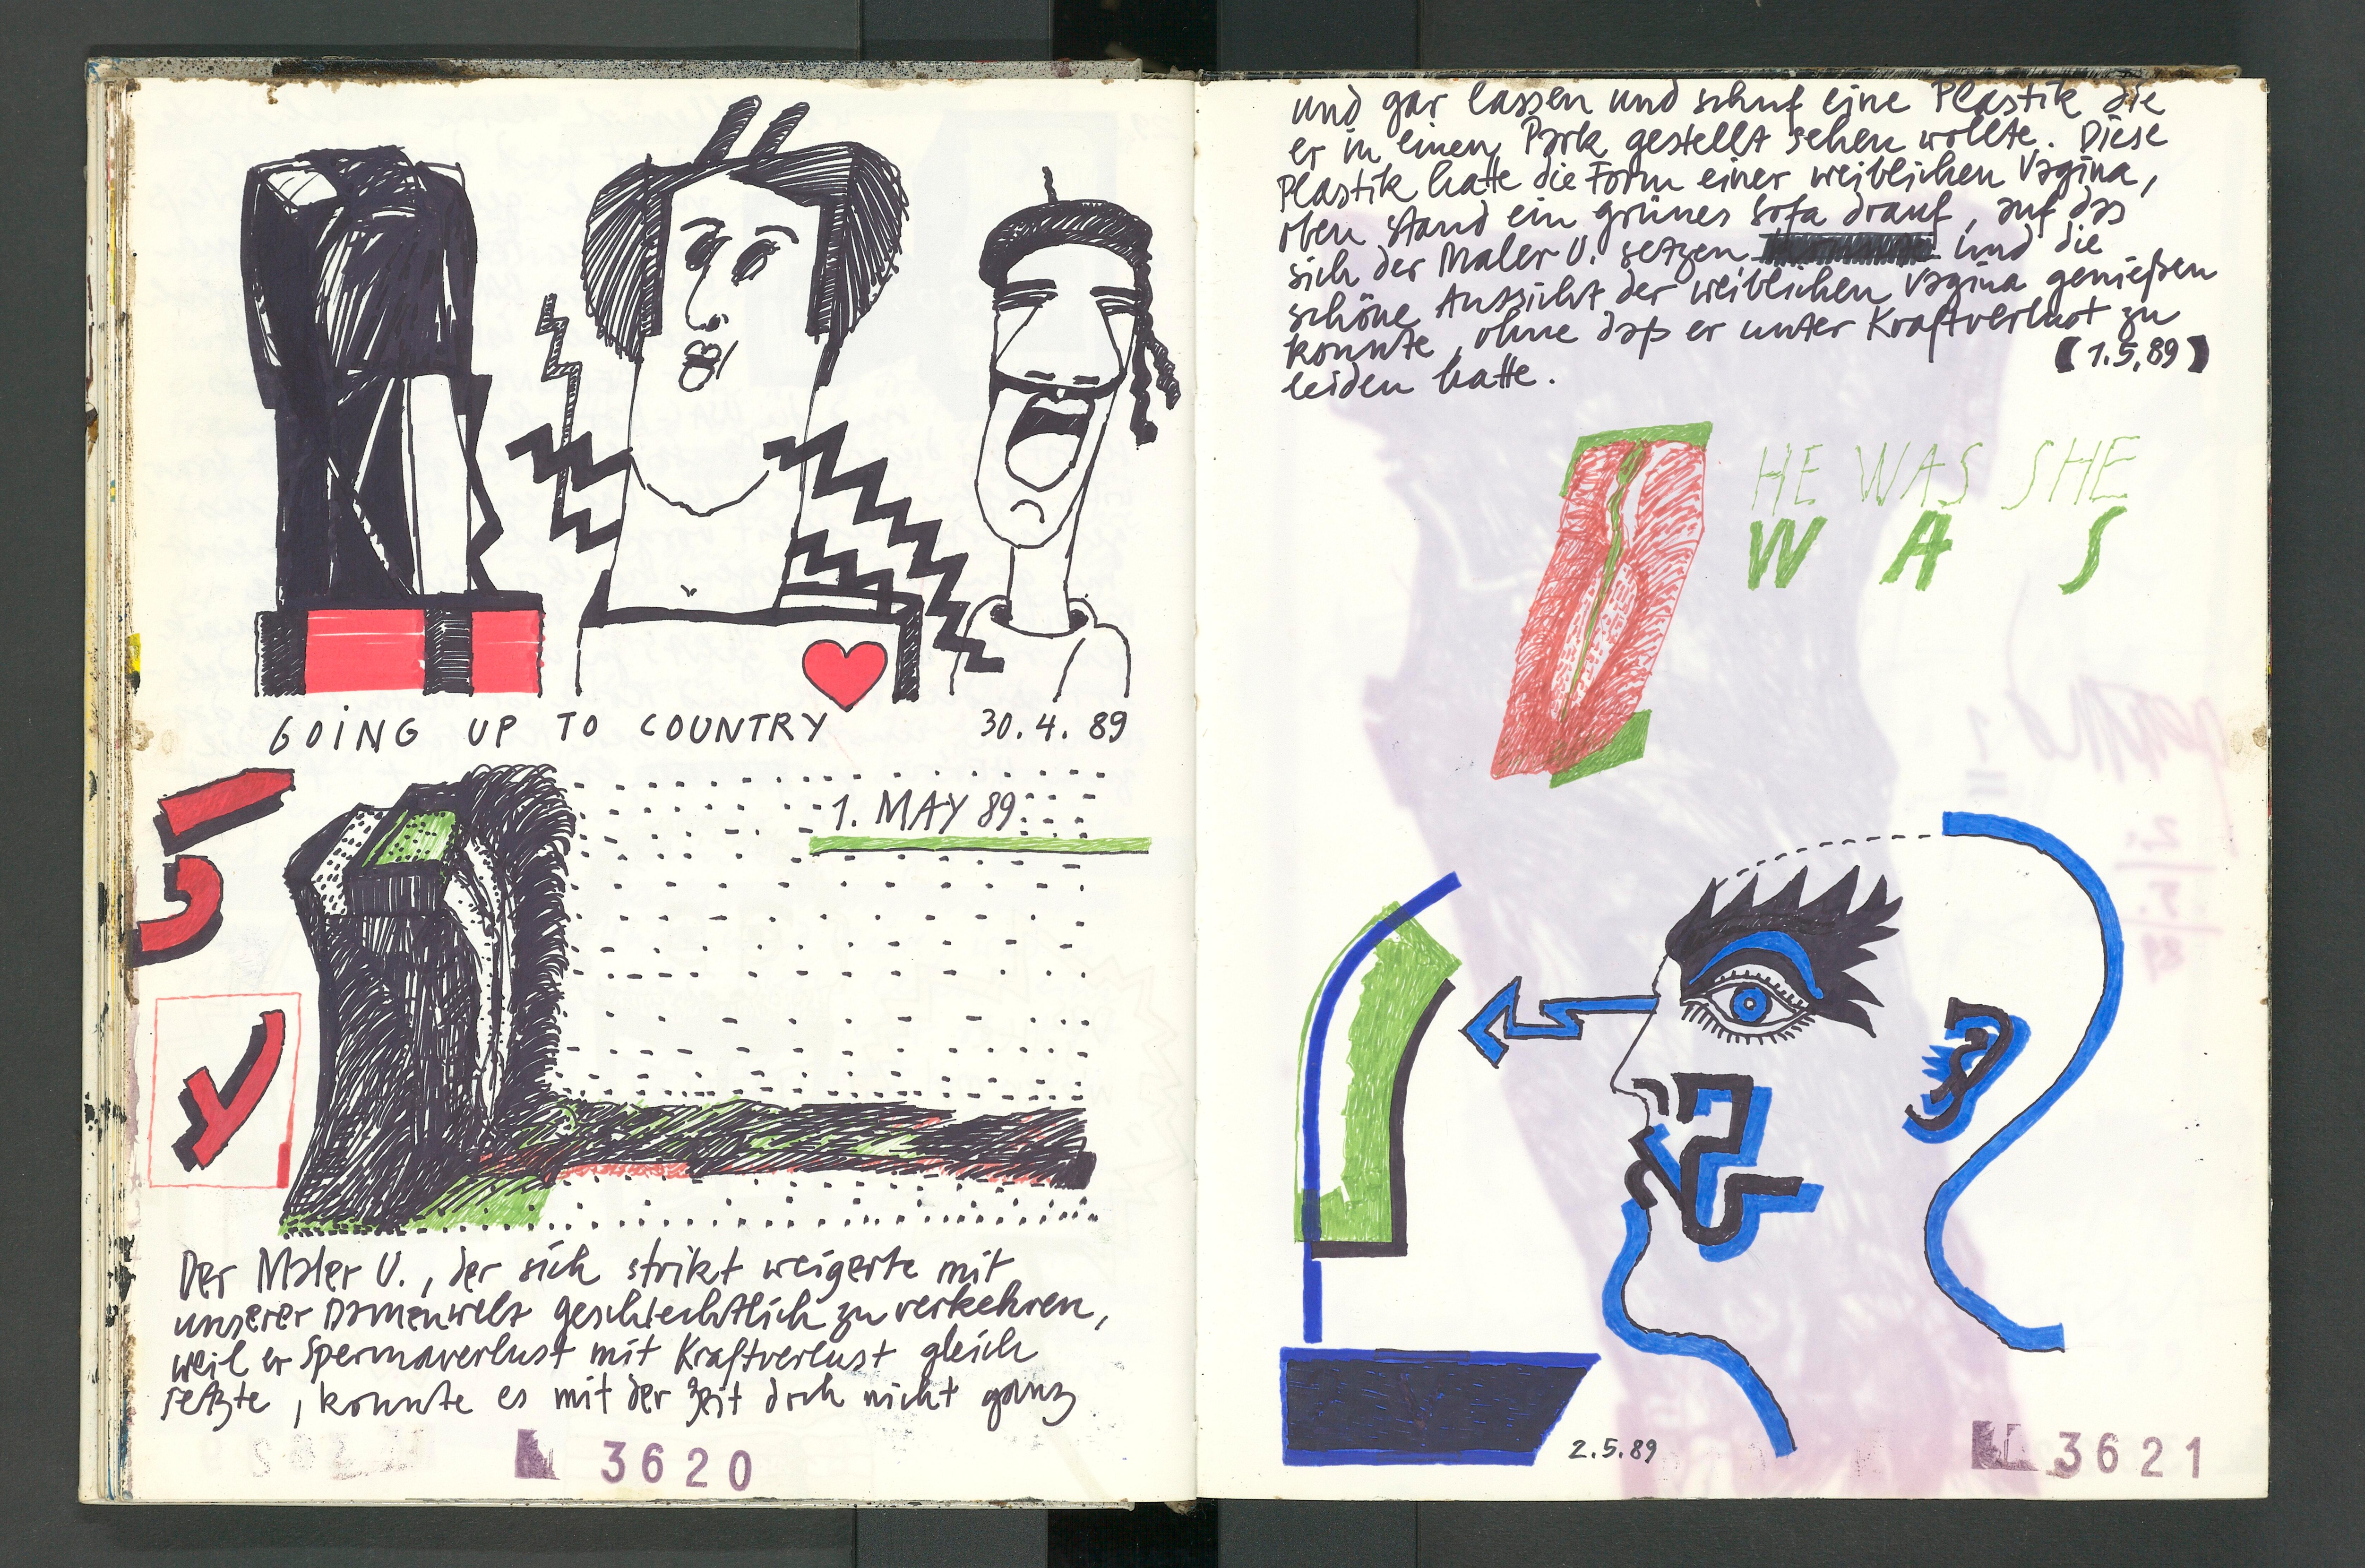 GOING UP TO COUNTRY 30.4.89
1. MAY 89
Der Maler U., der sich strikt weigerte mit
unserer Damenwelt geschlechtlich zu verkehren,
weil er Spermaverlust mit Kraftverlust gleich
setzte, konnte es mit der Zeit doch nicht ganz
3620
und gar lassen und schuf eine Plastik die
er in einen Park gestellt sehen wollte. Diese
Plastik hatte die Form einer weiblichen Vagina,
oben stand ein grünes Sofa drauf, auf das
sich der Maler U. setzen und die
schöne Aussicht der weiblichen Vagina genießen
konnte, ohne daß er unter Kraftverlust zu
leiden hatte. [1.5.89]
HE WAS SHE
WAS
2.5.89
3621